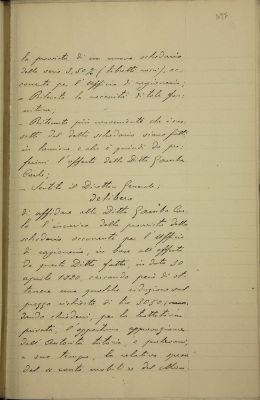 la provvista di un nuovo schedario
della serie
per l'Ufficio di ragioneria;
- Ritenuta la necessità di tale for-
nitura;
- Ritenuto più conveniente che i cas-
setti del detto schedario siano fatti
in lamiera e che è quindi da pre-
ferirsi l'offerta della Ditta Gamba
Carlo;
- Sentito il Direttore Generale;
Delibera
di affidare alla Ditta Gamba Car-
lo l'incarico della provvista dello
schedario occorrente per l'Ufficio
di ragioneria, in base all'offerta
da questa Ditta fatta, in data 30
aprile 1920, cercando però di ot-
tenere una qualche riduzione sul
prezzo richiesto di
chiedersi, per la trattativa
privata, l'opportuna approvazione
dell'Autorità tutoria, e prelevare,
a suo tempo, la relativa spesa
dal conto mobiliare del